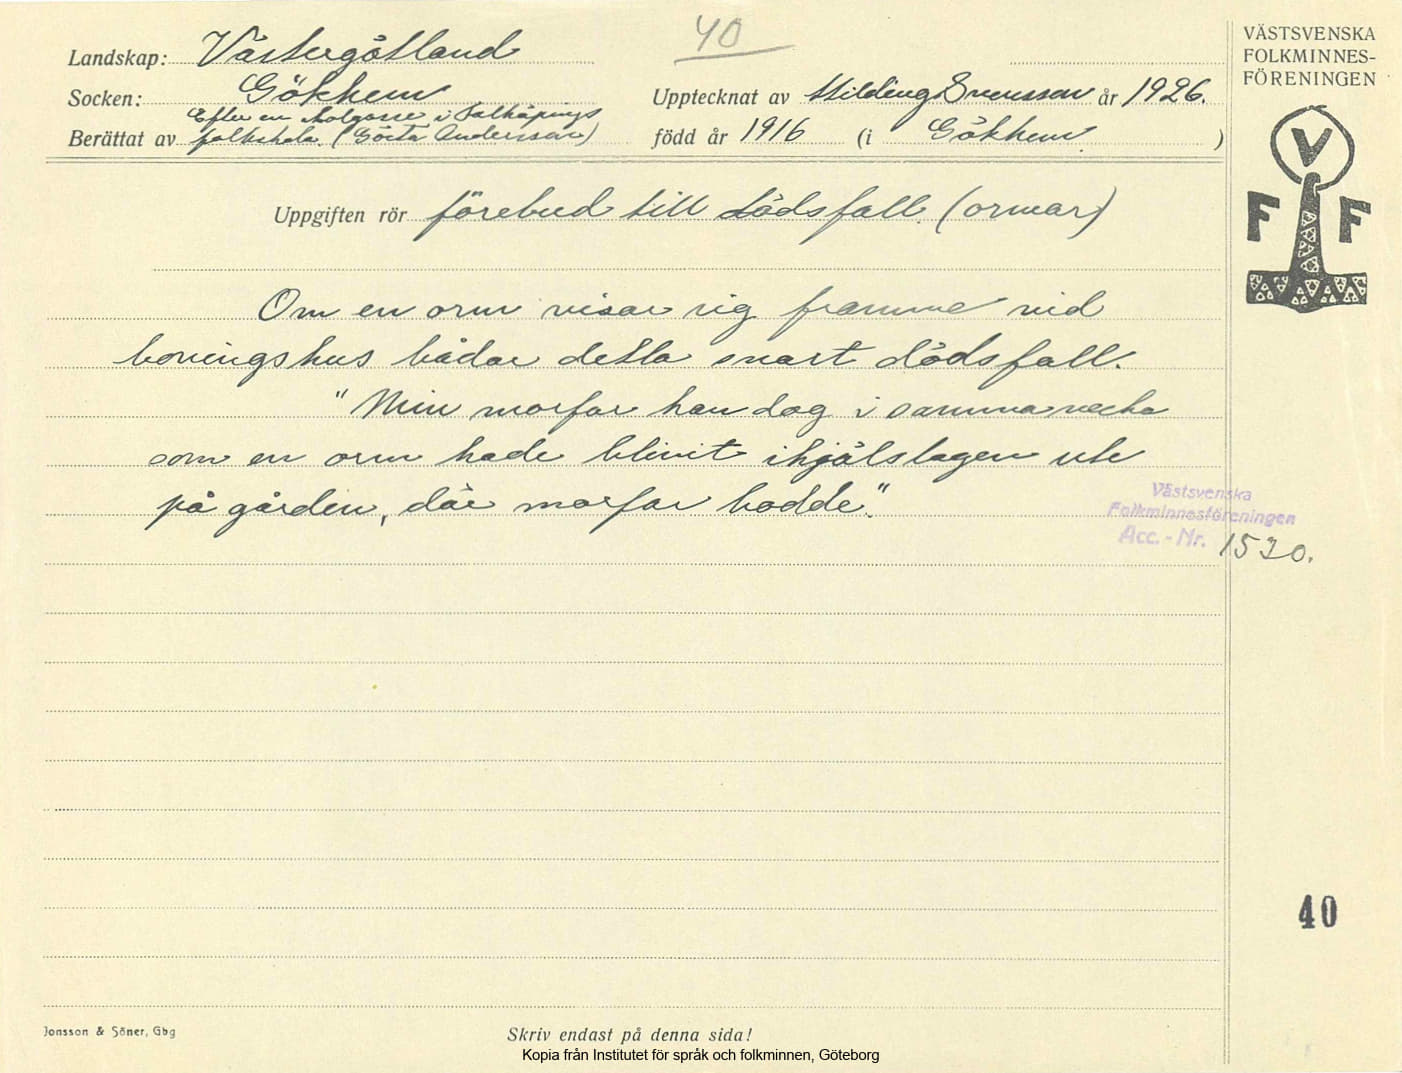 40
VÄSTSVENSKA
FOLKMINNES-
FÖRENINGEN
Landskap: Västergötland
Socken: Gökhem
Upptecknat av Hilding Svensson år 1926.
Efter en skolgosse i Falköpings
Berättat av folkskola. (Gösta Andersson)
född år 1916 (i Gökhem. )
V
F F
Uppgiften rör förebud till dödsfall. (ormar)
Om en orm visar sig framme vid
boningshus bådar detta snart dödsfall.
"Min morfar han dog i samma vecka
som en orm hade blivit ihjälslagen ute
på gården, där morfar bodde."
Västsvenska
Folkminnesföreningen
Acc. - Nr. 1530.
40
Jonsson & Söner, Gbg
Skriv endast på denna sida!
Kopia från Institutet för språk och folkminnen, Göteborg